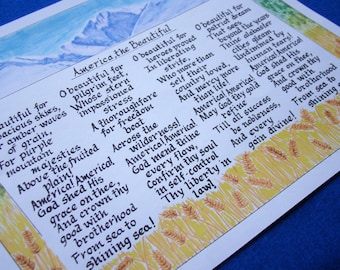 America, the Beautiful
autiful for
pacious skies,
or amber waves
of grain,
For purple
mountain
majesties
Above the
fruited
America! America!
God shed His
grace on thee,
And crown thy
good with
brotherhood
From sea to
shining sea!
O beautiful for
pilgrim feet
Whose stern
impassioned
stress
A thoroughfare
for freedom
beat
Across the
wilderness!
America! America!
God mend thine
every flaw,
Confirm thy soul
in self-control
Thy liberty in
law!
O beautiful for
heroes proved
In liberating
strife,
Who more than
self their
country loved
And mercy more
than life!
America! America!
May God thy gold
refine
Till all success
be nobleness
And every
gain divine!
O beautiful for
patriot dream
That sees beyond
the years
Thine alabaster
cities gleam
Undimmed by
human tears!
America! America!
God shed His
grace on thee
And crown thy
good with
brotherhood
From sea to
shining sea!